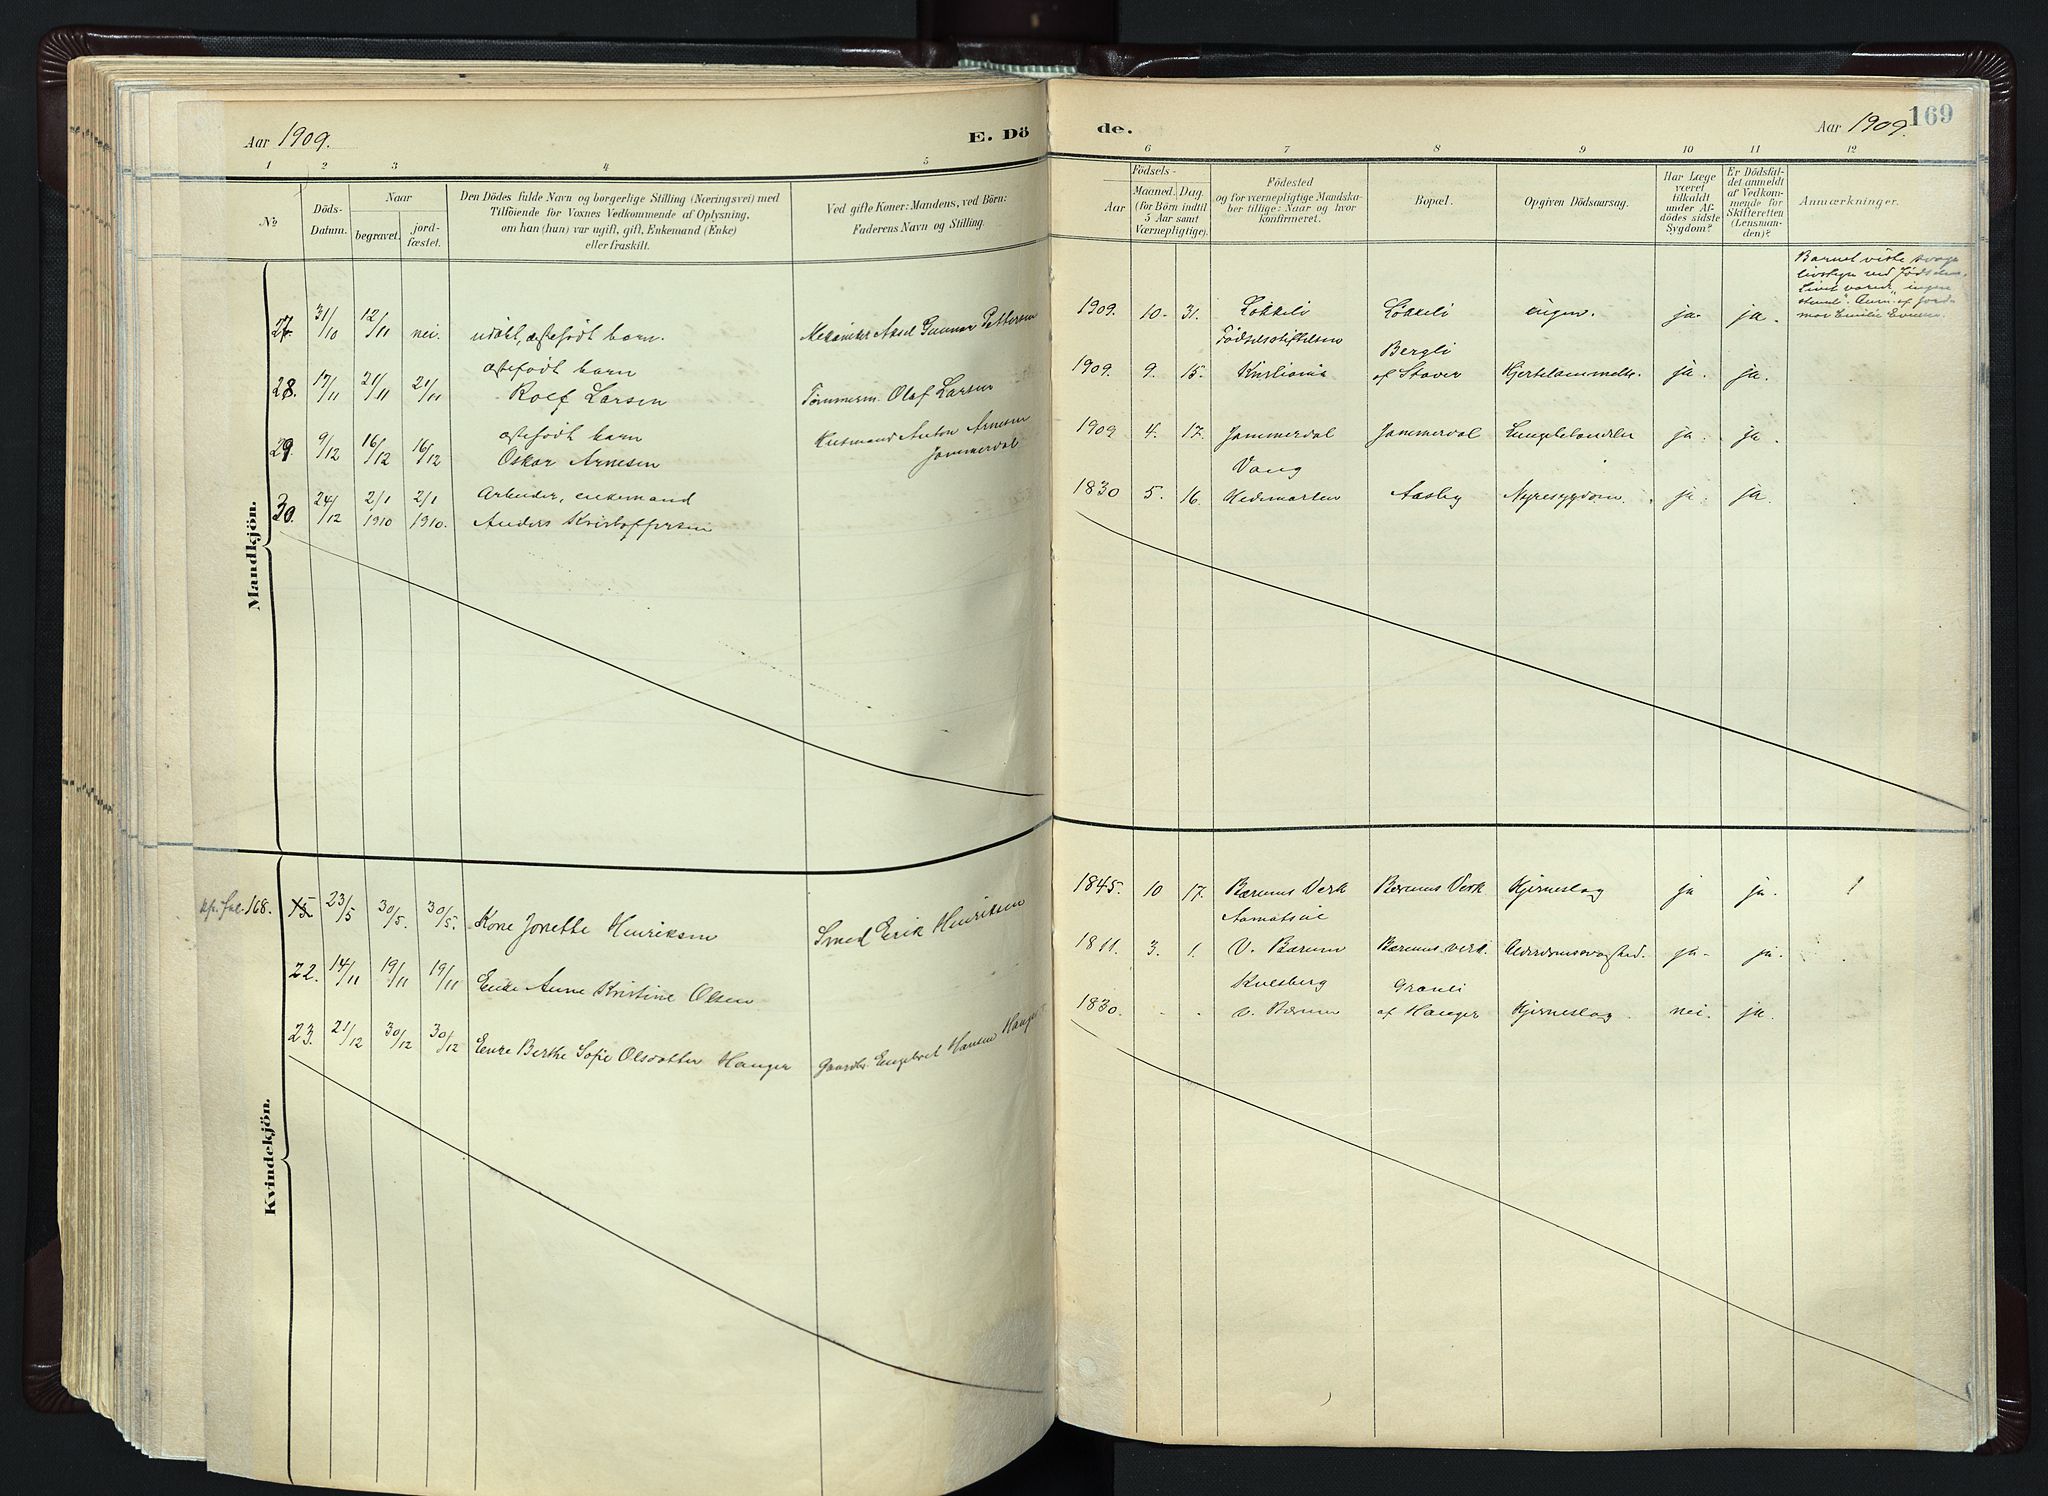 Aar 1909.
E. Dö
de.
Aar 1909.
169
1 2 3 4 5
6 7 8 9 10 11 12
No.
Döds-
Datum.
Naar
begravet.
jord-
fæstet.
Den Dödes fulde Navn og borgerlige Stilling (Næringsvei) med
Tilföiende for Voxnes Vedkommende af Oplysning,
om han (hun) var ugift, gift, Enkemand (Enke)
eller fraskilt.
Ved gifte Koner: Mandens, ved Börn:
Faderens Navn og Stilling.
Födsels-
Aar
Maaned.
Dag.
(for Börn indtil
5 Aar samt
Værnepligtige).
Födested
og for værnepligtige Mandska-
ber tillige: Naar og hvor
konfirmeret.
Bopæl.
Opgiven Dödsaarsag.
Har Læge
været
tilkaldt
under Af-
dödes sidste
Sygdom?
Er Dödsfal-
det anmeldt
af Vedkom-
mende for
Skifteretten
(Lensman-
den)?
Anmærkninger.
Mandkjön.
27. 31/10 12/11 nei. udöbt, ægtefødt barn. Mekaniker Axel Gunnar Pettersen
1909. 10. 31. Løkkeli Løkkeli ingen. ja. ja.
Barnet viste svage
livstegn ved Fødselen.
Livet varede "ingen
stund". Anm. af Jord-
mor Emilie
28. 17/11 21/11 21/11 ægtefødt barn
Rolf Larsen Tømmerm. Olaf Larsen
Fødselsstiftelsen Bergli
1909. 9. 15. Kristiania af Staver Hjertelammelse. ja. ja.
29. 9/12 16/12 16/12 ægtefødt barn
Oskar Arnesen Husmand Anton Arnesen
Jammerdal
1909 4. 17. Jammerdal Jammerdal ja. ja.
30. 24/12 2/1 1910 2/1 1910. Arbeider, enkemand
Anders Kristoffersen
Vang
1830 5. 16. Hedemarken Aasby Nyresygdom. ja. ja.
Kvindekjön.
fol. 168. 15. 23/5 30/5. 30/5. Kone Jonette Henriksen Smed Erik Henriksen
1845. 10 17. Bærums Verk Bærums Verk Hjerneslag ja ja.
22. 14/11 19/11 19/11 Enke Anne Kristine Olsen
1811. 3. 1. V. Bærum Bærums verk. Alderdomssvaghed. ja. ja.
23. 21/12 30/12 30/12 Enke Berthe Sofie Olsdatter Hauger Gaardbr. Engebret Hansen Hauger
Kulsberg Granli
1830. . . V. Bærum af Hauger Hjerneslag. nei. ja.